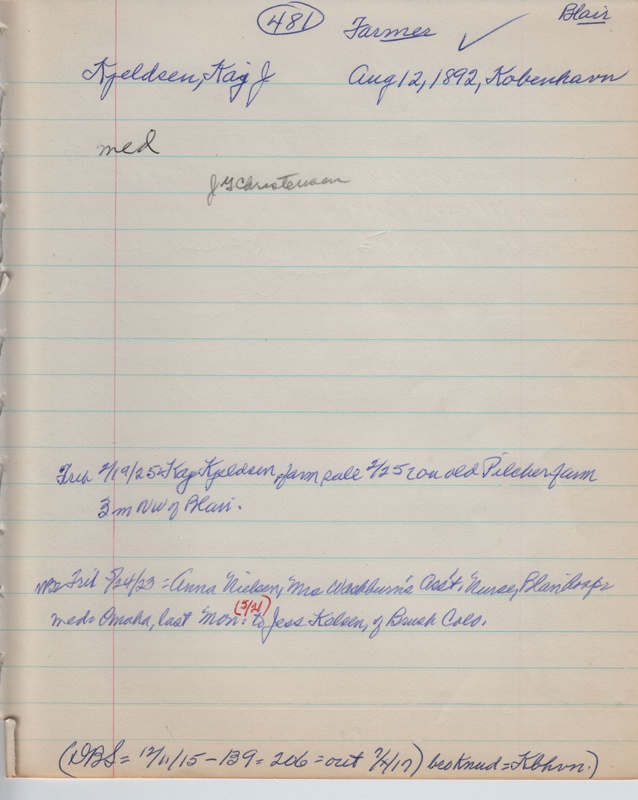 481 Farmer ✓ Blair
Kjeldsen, Kaj J Aug 12, 1892, Kobenhavn
med
J G Christensen
Trib 2/19/25 = Kay Kjeldsen, farm sale 2/25 on old Pilcher farm
3 m NW of Blair.
Trib 5/24/23 = Anna Nielsen, Mrs Washburn's Ass't. Nurse, Blair Hosp =
med = Omaha, last Mon. (5/21) to Jess Kelsen, of Brush Colo.
(DBS = 12/11/15 - 139 = 206 = out 7/4/17) bro Knud = Kbhvn.)